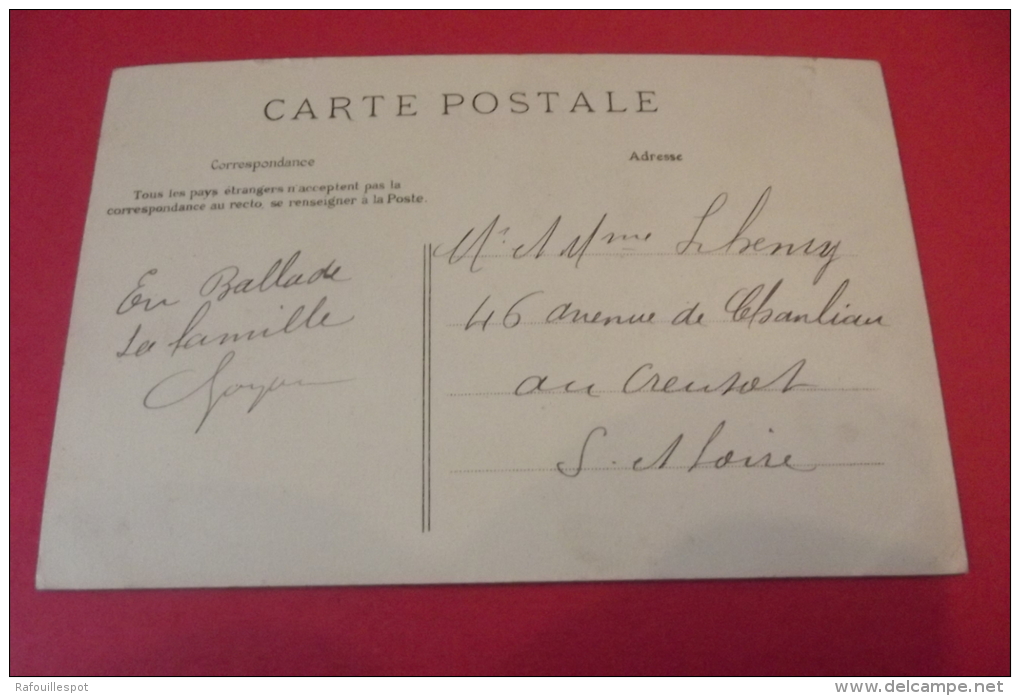 CARTE POSTALE
Correspondance
Tous les pays étrangers n'acceptent pas la
correspondance au recto, se renseigner à la Poste.
En Ballade
La famille
Adresse
Mr et Mme
46 avenue de Chanliau
au Creusot
S. et Loire
Rafouillespot
www.delcampe.net